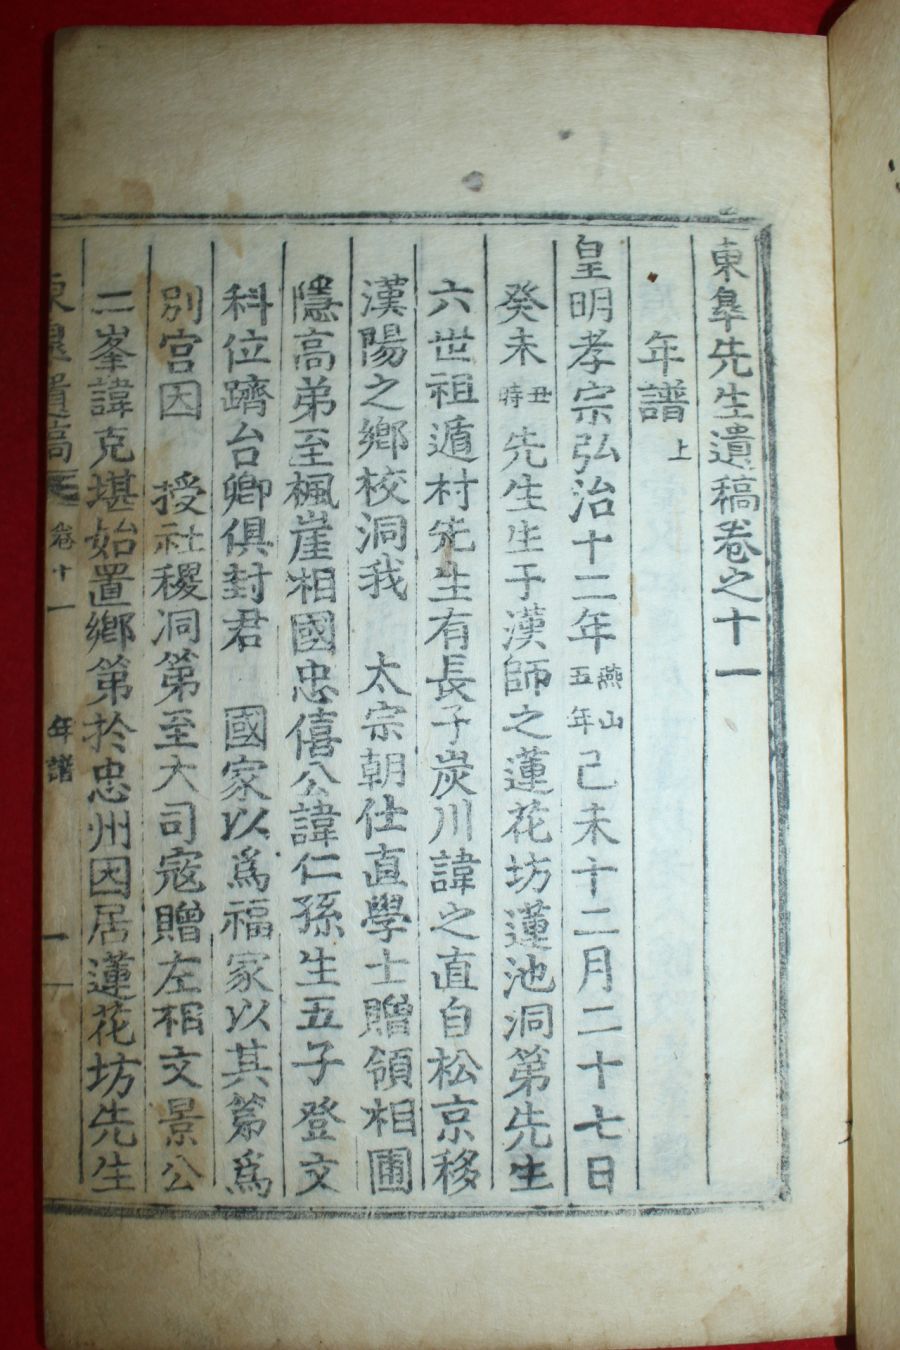 東皐先生遺稿卷之十一
年譜上
皇明孝宗弘治十二年燕山五年己未十二月二十七日
癸未丑時先生生于漢師之蓮花坊蓮池洞第先生
六世祖遁村先生有長子炭川諱之直自松京移
漢陽之鄉校洞我 太宗朝仕直學士贈領相圃
隱高弟至楓崖相國忠僖公諱仁孫生五子登文
科位躋台卿俱封君 國家以爲福家以其第爲
別宮因 授社稷洞第至大司寇贈左相文景公
二峯諱克堪始置鄉第於忠州因居蓮花坊先生
東皐遺稿 卷十一 年譜 一